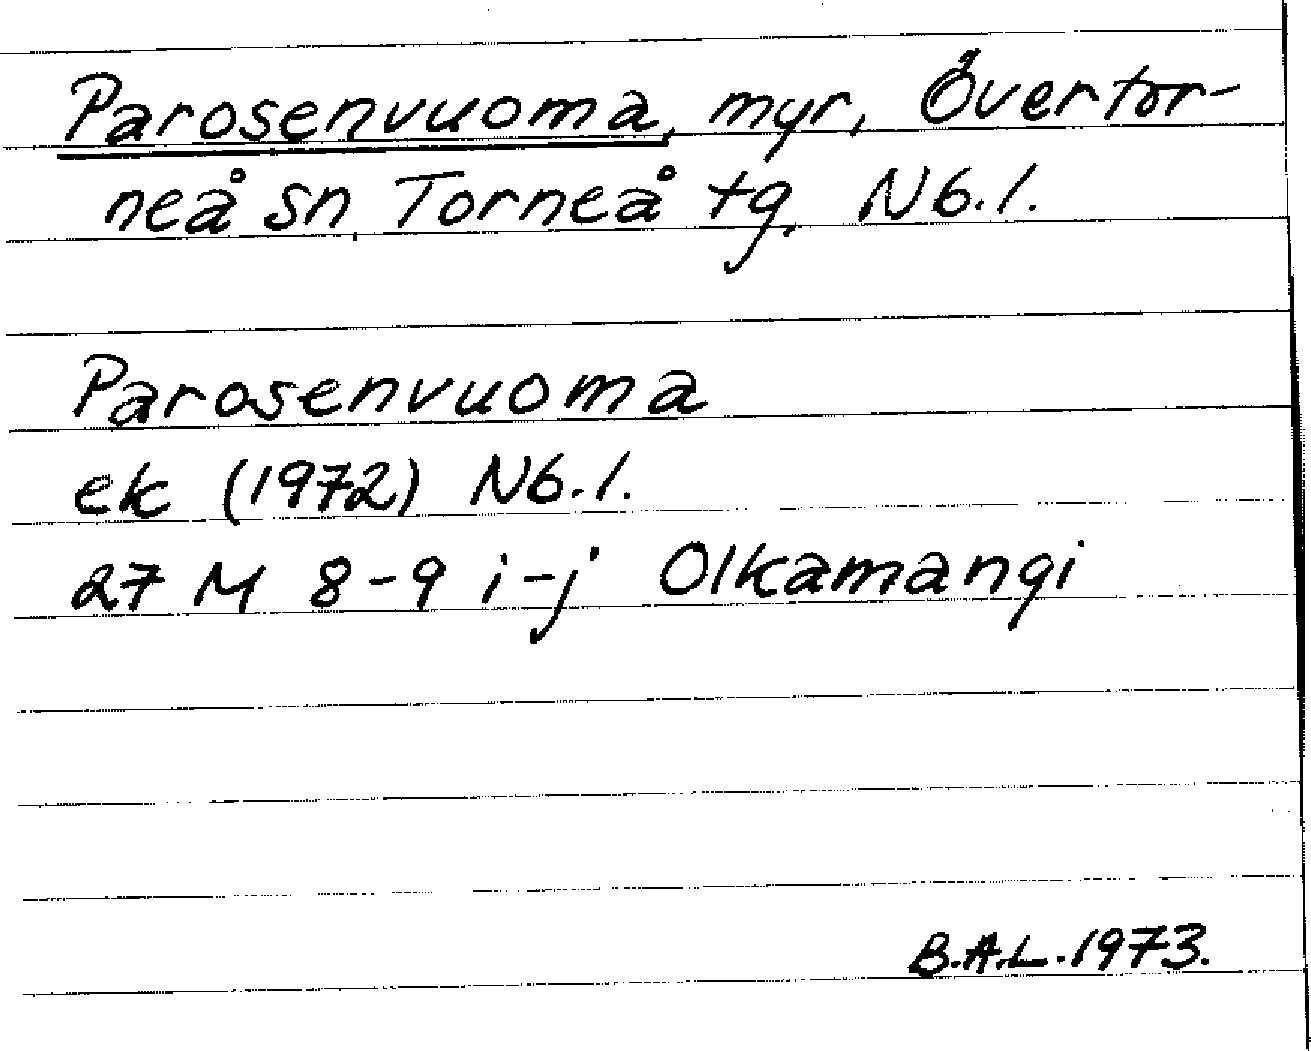 Parosenvuoma, myr, Övertor-
neå sn, Torneå tg, Nb.l.
Parosenvuoma
ek (1972) Nb.l.
27 M 8-9 i-j Olkamangi
B.A.L. 1973.